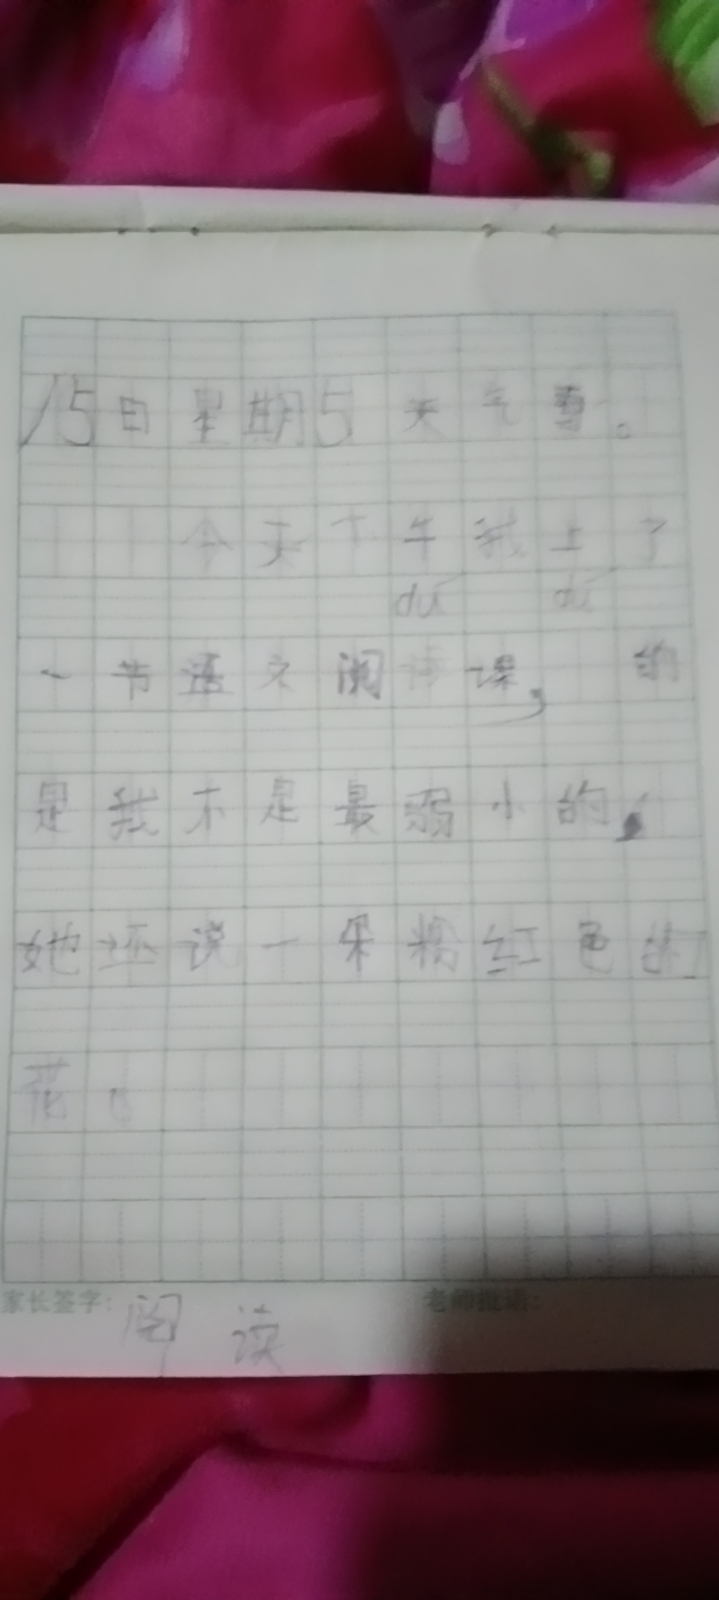 15日星期5 天气雪。
今天下午我上了
dú dú
一节语文阅读课, 的
是我不是最弱小的,
她还说一朵粉红色的
花。
家长签字: 阅读 老师批语: